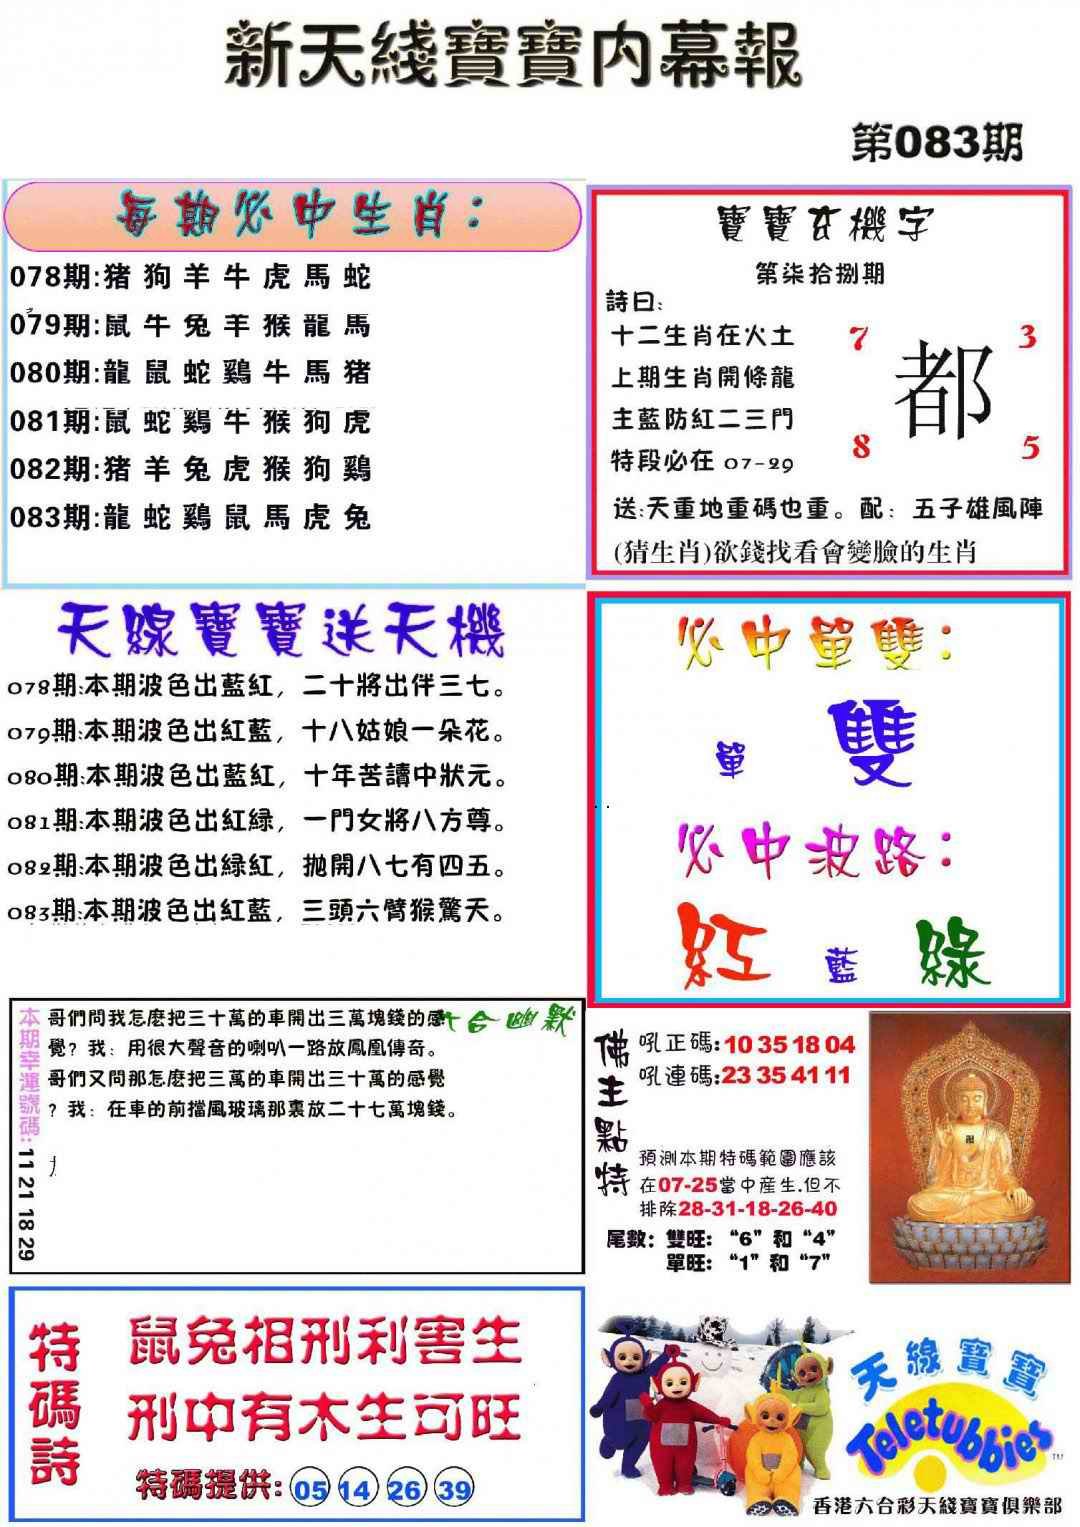 新天綫寶寶内幕報
第083期
每期必中生肖：
078期:猪狗羊牛虎馬蛇
079期:鼠牛兔羊猴龍馬
080期:龍鼠蛇鷄牛馬猪
081期:鼠蛇鷄牛猴狗虎
082期:猪羊兔虎猴狗鷄
083期:龍蛇鷄鼠馬虎兔
寶寶玄機字
第柒拾捌期
詩曰:
十二生肖在火土
上期生肖開條龍
主藍防紅二三門
特段必在 07-29
7 3
都
8 5
送:天重地重碼也重。配：五子雄風陣
(猜生肖)欲錢找看會變臉的生肖
天線寶寶送天機
078期:本期波色出藍紅，二十將出伴三七。
079期:本期波色出紅藍，十八姑娘一朵花。
080期:本期波色出藍紅，十年苦讀中狀元。
081期:本期波色出紅緑，一門女將八方尊。
082期:本期波色出緑紅，拋開八七有四五。
083期:本期波色出紅藍，三頭六臂猴驚天。
必中單雙：
單 雙
必中波路：
紅 藍 綠
本期幸運號碼:11 21 18 29
六合幽默
哥們問我怎麽把三十萬的車開出三萬塊錢的感
覺？我：用很大聲音的喇叭一路放鳳凰傳奇。
哥們又問那怎麽把三萬的車開出三十萬的感覺
？我：在車的前擋風玻璃那裏放二十七萬塊錢。
佛主點特
吼正碼:10 35 18 04
吼連碼:23 35 41 11
預測本期特碼範圍應該
在07-25當中産生.但不
排除28-31-18-26-40
尾數：雙旺：“6”和“4”
單旺：“1”和“7”
特碼詩
鼠兔相刑利害生
刑中有木生可旺
特碼提供: 05 14 26 39
天線寶寶
Teletubbies
TM
香港六合彩天綫寶寶俱樂部